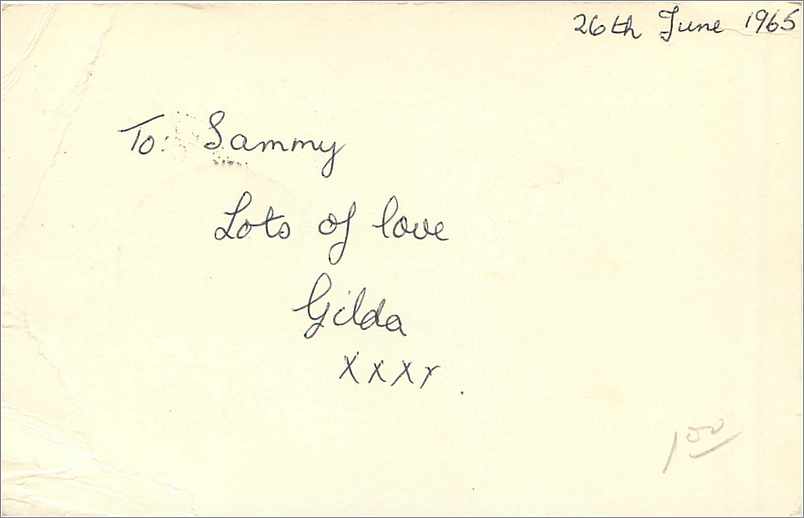 26th June 1965
To: Sammy
Lots of love
Gilda
xxxx.
1.00